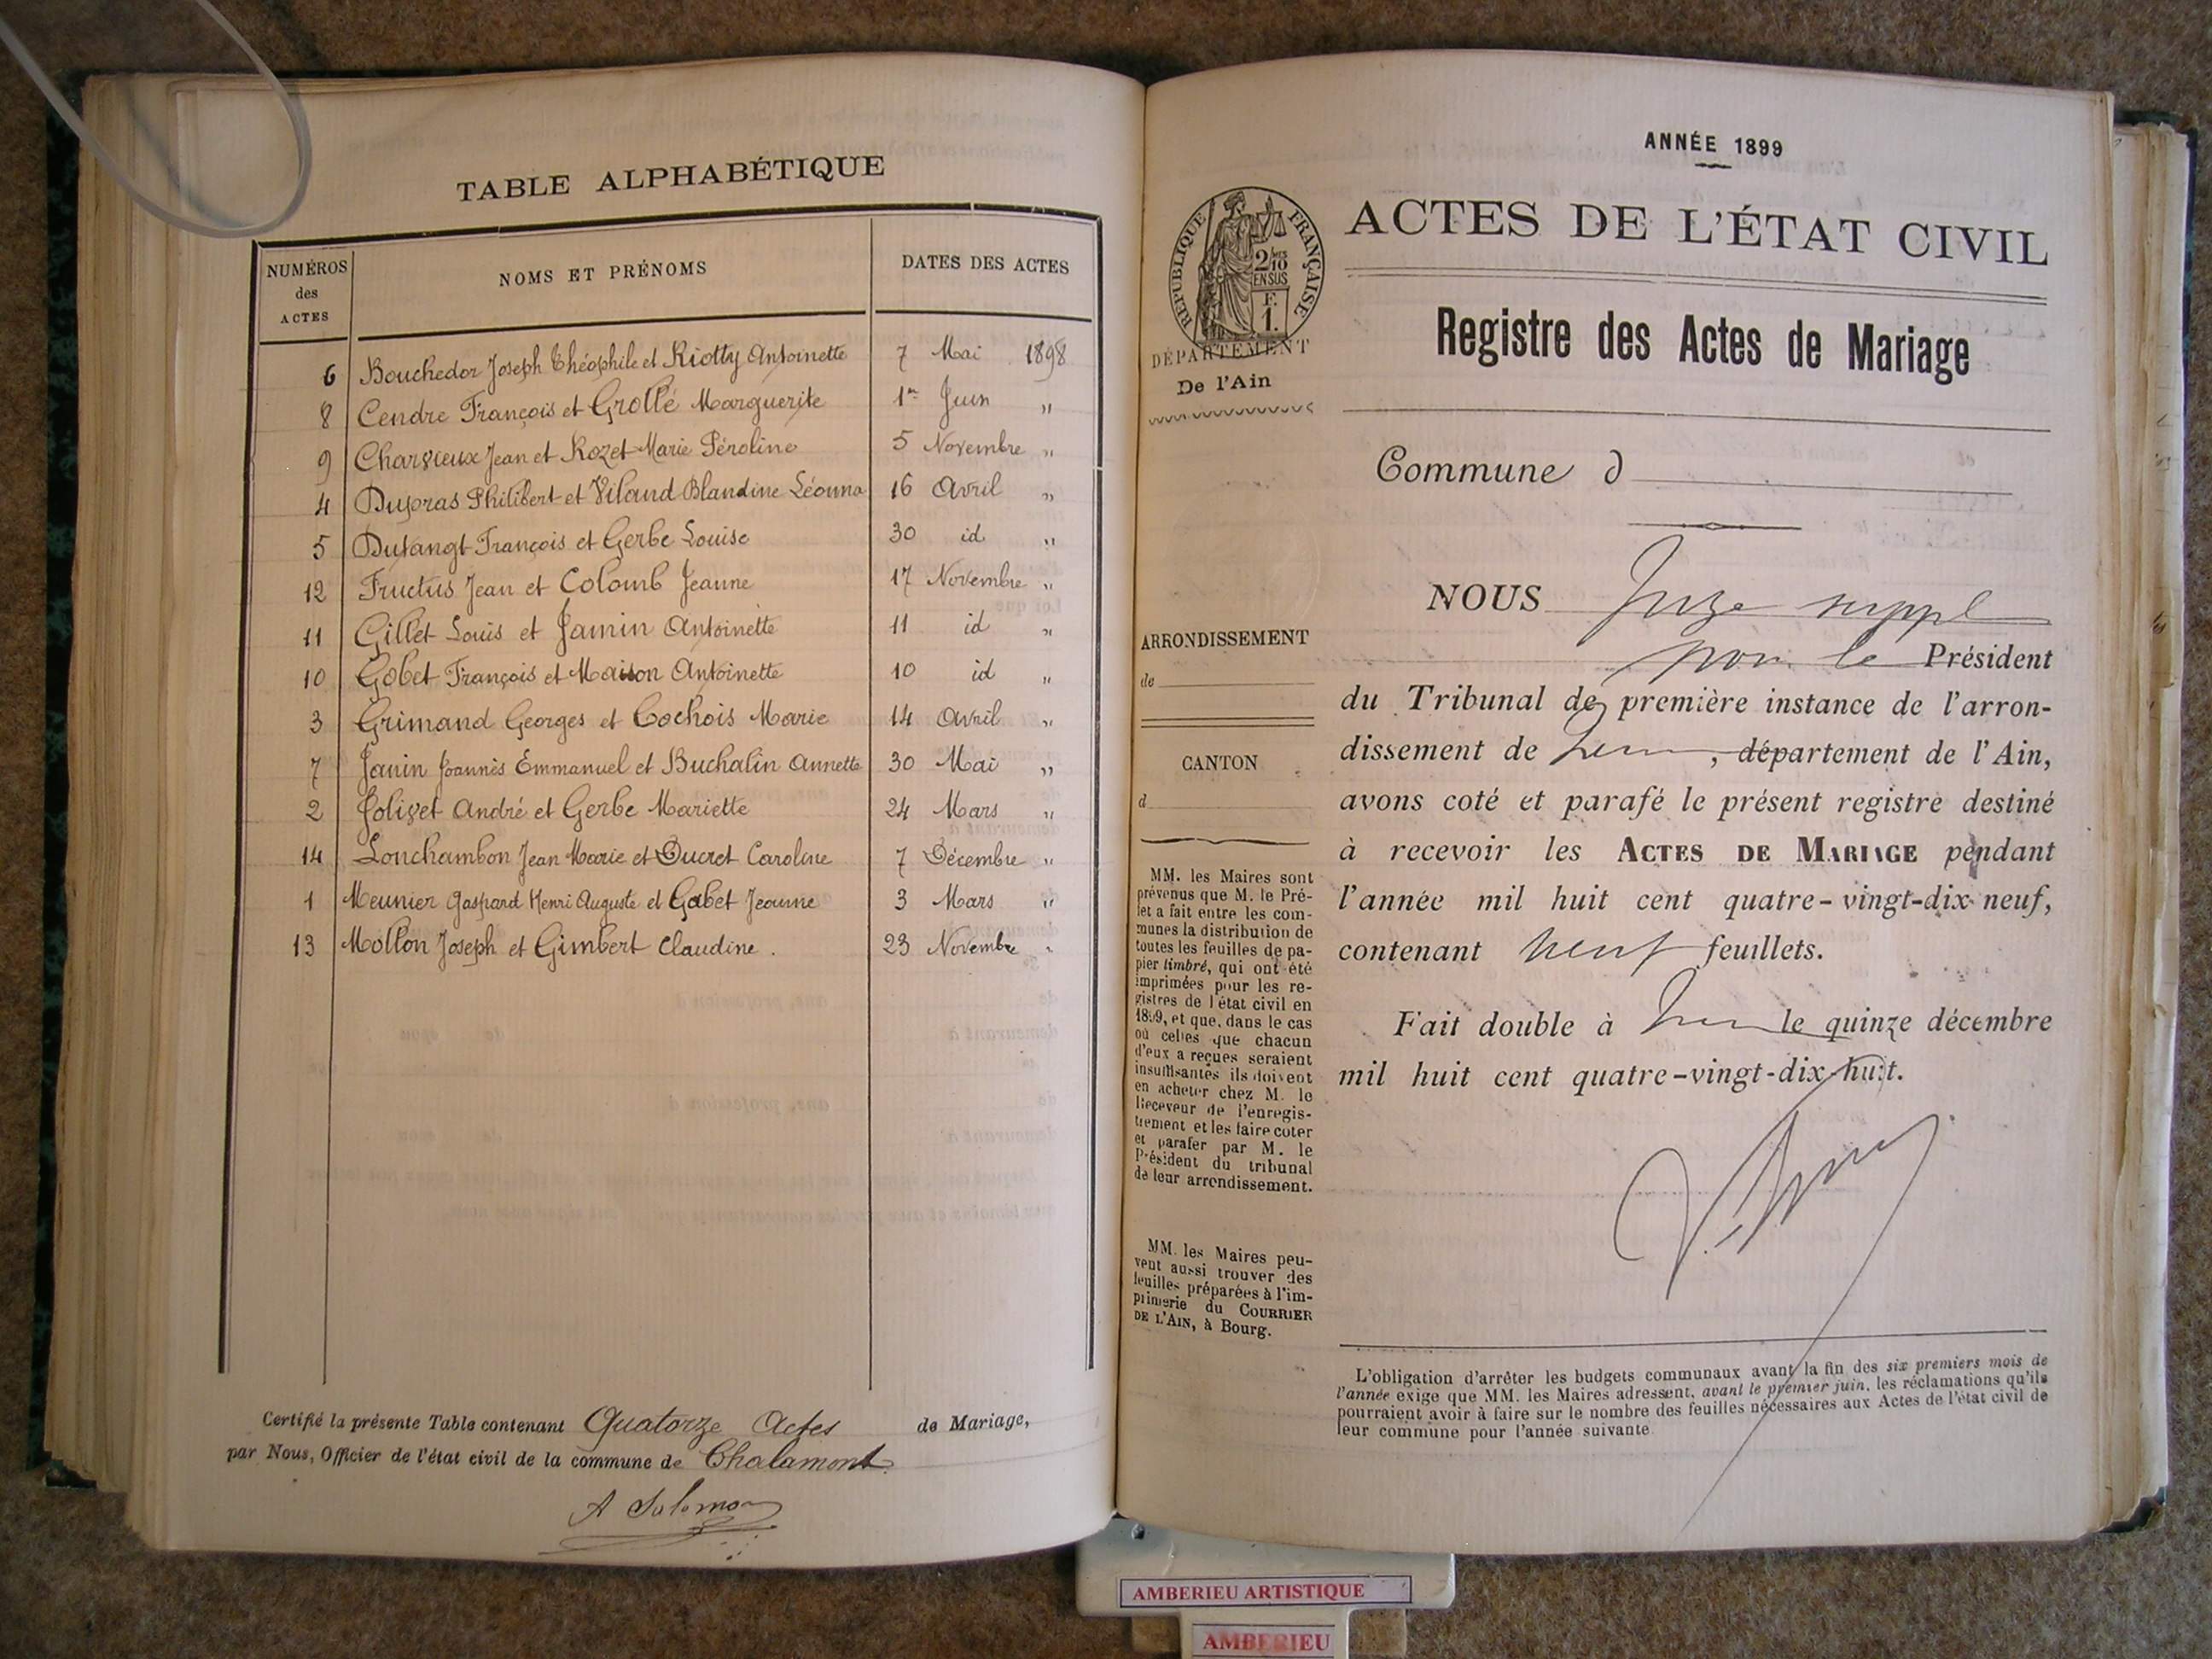 TABLE ALPHABÉTIQUE
NUMÉROS des ACTES NOMS ET PRÉNOMS DATES DES ACTES
6 Bouchedor Joseph Théophile et Riotty Antoinette 7 Mai 1898
8 Cendre François et Grollé Marguerite 1er Juin "
9 Charvieux Jean et Rozet Marie Péroline 5 Novembre "
4 Dupras Philibert et Vilaud Blandine Léonna 16 Avril "
5 Dutangt François et Gerbe Louise 30 id "
12 Fructus Jean et Colomb Jeanne 17 Novembre "
11 Gillet Louis et Jamin Antoinette 11 id "
10 Gobet François et Maison Antoinette 10 id "
3 Grimand Georges et Cochois Marie 14 Avril "
7 Janin Joannès Emmanuel et Buchalin Annette 30 Mai "
2 Jolivet André et Gerbe Mariette 24 Mars "
14 Lonchambon Jean Marie et Ducret Caroline 7 Décembre "
1 Meunier Gaspard Henri Auguste et Gabet Jeanne 3 Mars "
13 Mollon Joseph et Gimbert Claudine . 23 Novembre "
Certifié la présente Table contenant Quatorze Actes de Mariage,
par Nous, Officier de l'état civil de la commune de Chalamont
A Salomon
ANNÉE 1899
RÉPUBLIQUE FRANÇAISE
2/10
EN SUS
F.
1.
DÉPARTEMENT
De l'Ain
ARRONDISSEMENT
de
CANTON
d
MM. les Maires sont
prévenus que M. le Pré-
fet a fait entre les com-
munes la distribution de
toutes les feuilles de pa-
pier timbré, qui ont été
imprimées pour les re-
gistres de l'état civil en
1899, et que, dans le cas
où celles que chacun
d'eux a reçues seraient
insuffisantes ils doivent
en acheter chez M. le
Receveur de l'enregis-
trement et les faire coter
et parafer par M. le
Président du tribunal
de leur arrondissement.
MM. les Maires peu-
vent aussi trouver des
feuilles préparées à l'im-
primerie du COURRIER
DE L'AIN, à Bourg.
ACTES DE L'ÉTAT CIVIL
Registre des Actes de Mariage
Commune d
NOUS Juge suppl
pour le Président
du Tribunal de première instance de l'arron-
dissement de , département de l'Ain,
avons coté et parafé le présent registre destiné
à recevoir les ACTES DE MARIAGE pendant
l'année mil huit cent quatre-vingt-dix-neuf,
contenant neuf feuillets.
Fait double à le quinze décembre
mil huit cent quatre-vingt-dix-huit.
L'obligation d'arrêter les budgets communaux avant la fin des six premiers mois de
l'année exige que MM. les Maires adressent, avant le premier juin, les réclamations qu'ils
pourraient avoir à faire sur le nombre des feuilles nécessaires aux Actes de l'état civil de
leur commune pour l'année suivante
AMBERIEU ARTISTIQUE
AMBERIEU